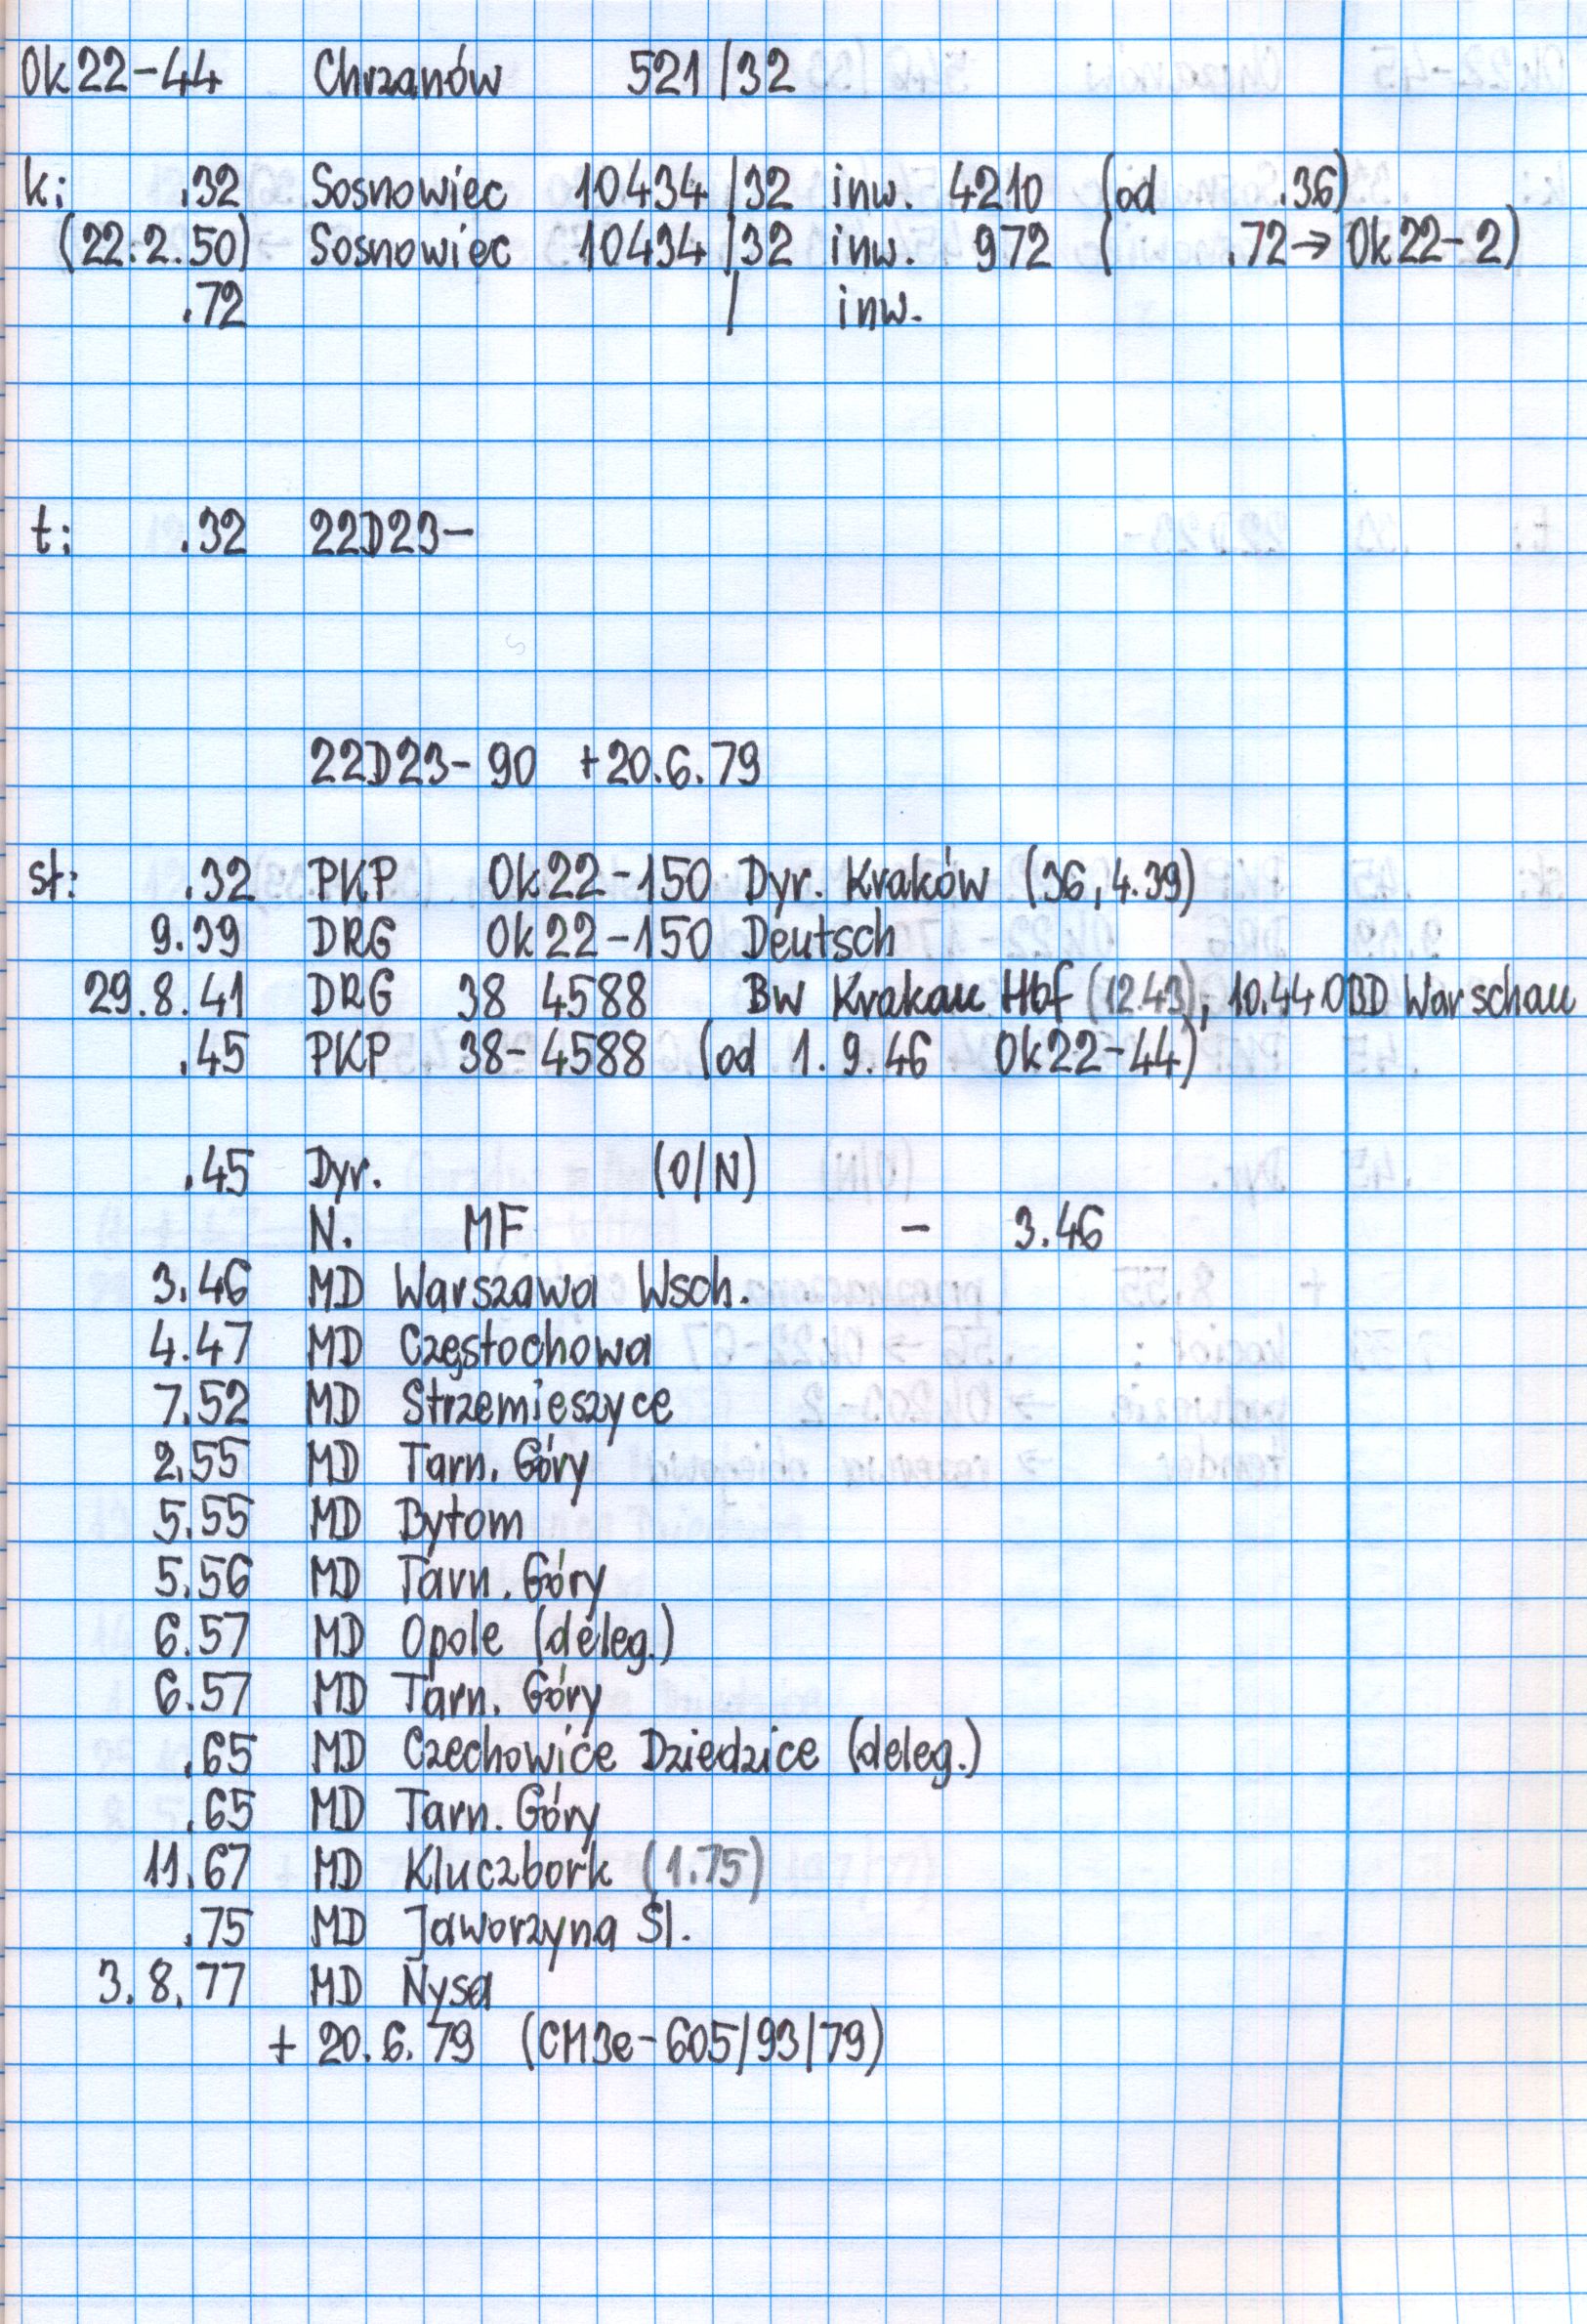 Ok22-44 Chrzanów 521/32
k: .32 Sosnowiec 10434/32 inw. 4210 (od .36)
(22.2.50) Sosnowiec 10434/32 inw. 972 ( .72→Ok22-2)
.72 / inw.
t: .32 22D23-
22D23-90 +20.6.79
st: .32 PKP Ok22-150 Dyr. Kraków (36,4.39)
9.39 DRG Ok22-150 Deutsch
29.8.41 DRG 38 4588 Bw Krakau Hbf (12.43), 10.44 OBD Warschau
.45 PKP 38-4588 (od 1.9.46 Ok22-44)
.45 Dyr. (O/N)
N. MF - 3.46
3.46 MD Warszawa Wsch.
4.47 MD Częstochowa
7.52 MD Strzemieszyce
2.55 MD Tarn. Góry
5.55 MD Bytom
5.56 MD Tarn. Góry
6.57 MD Opole (deleg.)
6.57 MD Tarn. Góry
.65 MD Czechowice Dziedzice (deleg.)
.65 MD Tarn. Góry
11.67 MD Kluczbork (1.75)
.75 MD Jaworzyna Śl.
3.8.77 MD Nysa
+ 20.6.79 (CM3e-605/93/79)